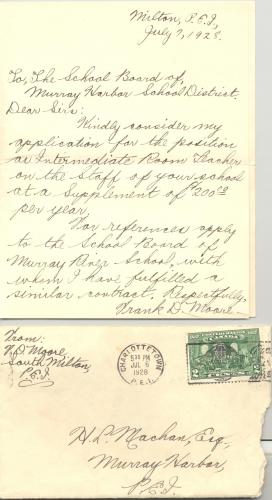 Milton, P.E.I.,
July 7, 1928.
To, The School Board of,
Murray Harbor School District.
Dear Sirs:
Kindly consider my
application for the position
as Intermediate Room Teacher
on the Staff of your school
at a Supplement of $200.00
per year.
For references apply
to the School Board of
Murray River School, with
whom I have fulfilled a
similar contract. Respectfully,
Frank D. Moore.
From:
F. D. Moore,
South Milton,
P.E.I.
CHARLOTTETOWN
PM
JUL
1928
P.E.I.
CANADA
H. L. Machan, Esq.,
Murray Harbor,
P.E.I.